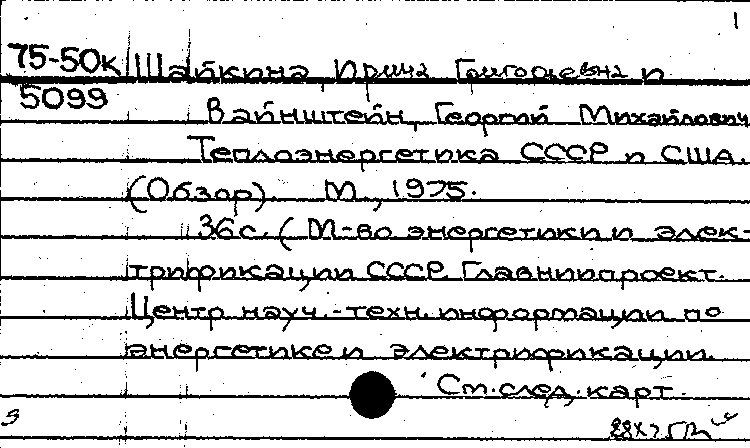 1
75-50к Шайкина, Ирина Григорьевна и
5099 Вайнштейн, Георгий Михайлович
Теплоэнергетика СССР и США.
(Обзор). М., 1975.
36с. (М-во энергетики и элек-
трификации СССР. Главниипроект.
Центр науч.-техн. информации по
энергетике и электрификации.
См. след. карт.
3